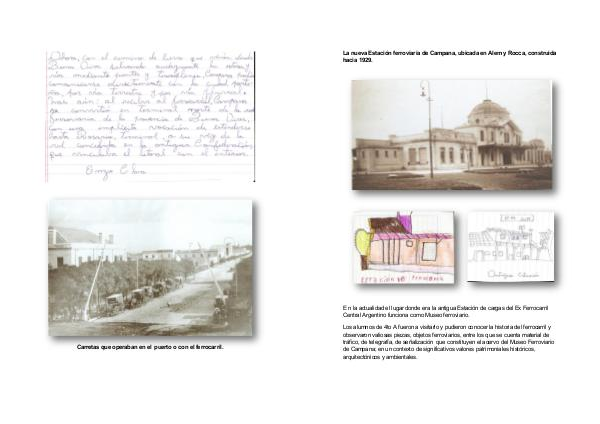 Ahora, con el camino de hierro que venía desde
Buenos Aires salvando zanjones y
río mediante puentes y Campana podía
comunicarse directamente con la ciudad
por vía terrestre y por vía fluvial.
mas aún: al recibir al ferrocarril, Campana
se convirtió en terminal norte de la red
ferroviaria de la provincia de Buenos Aires,
con una implícita vocación de extenderse
hasta Rosario, terminal, a su vez de la
red concebida en la antigua Confederación
que vinculaba el litoral con el interior.
Carretas que operaban en el puerto o con el ferrocarril.
La nueva Estación ferroviaria de Campana, ubicada en Alem y Rocca, construida
hacia 1929.
E n la actualidad el lugar donde era la antigua Estación de cargas del Ex Ferrocarril
Central Argentino funciona como Museo ferroviario.
Los alumnos de 4to A fueron a visitarlo y pudieron conocer la historia del ferrocarril y
observaron valiosas piezas, objetos ferroviarios, entre los que se cuenta material de
tráfico, de telegrafía, de señalización que constituyen el acervo del Museo Ferroviario
de Campana; en un contexto de significativos valores patrimoniales históricos,
arquitectónicos y ambientales.